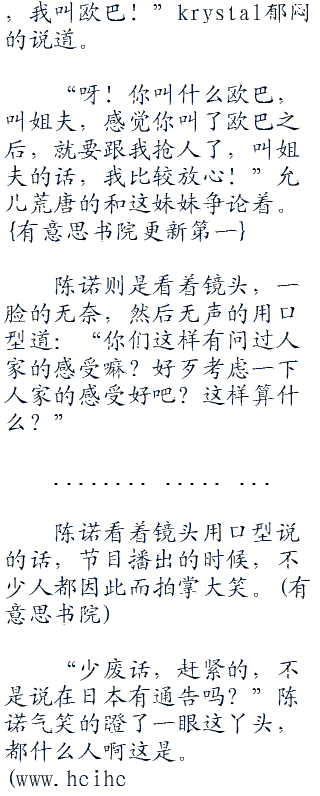 ，我叫欧巴！”krystal郁闷
的说道。
“呀！你叫什么欧巴，
叫姐夫，感觉你叫了欧巴之
后，就要跟我抢人了，叫姐
夫的话，我比较放心！”允
儿荒唐的和这妹妹争论着。
{有意思书院更新第一}
陈诺则是看着镜头，一
脸的无奈，然后无声的用口
型道：“你们这样有问过人
家的感受嘛？好歹考虑一下
人家的感受好吧？这样算什
么？”
........ ..... ...
陈诺看着镜头用口型说
的话，节目播出的时候，不
少人都因此而拍掌大笑。(有
意思书院)
“少废话，赶紧的，不
是说在日本有通告吗？”陈
诺气笑的瞪了一眼这丫头，
都什么人啊这是。
(www.hcihc